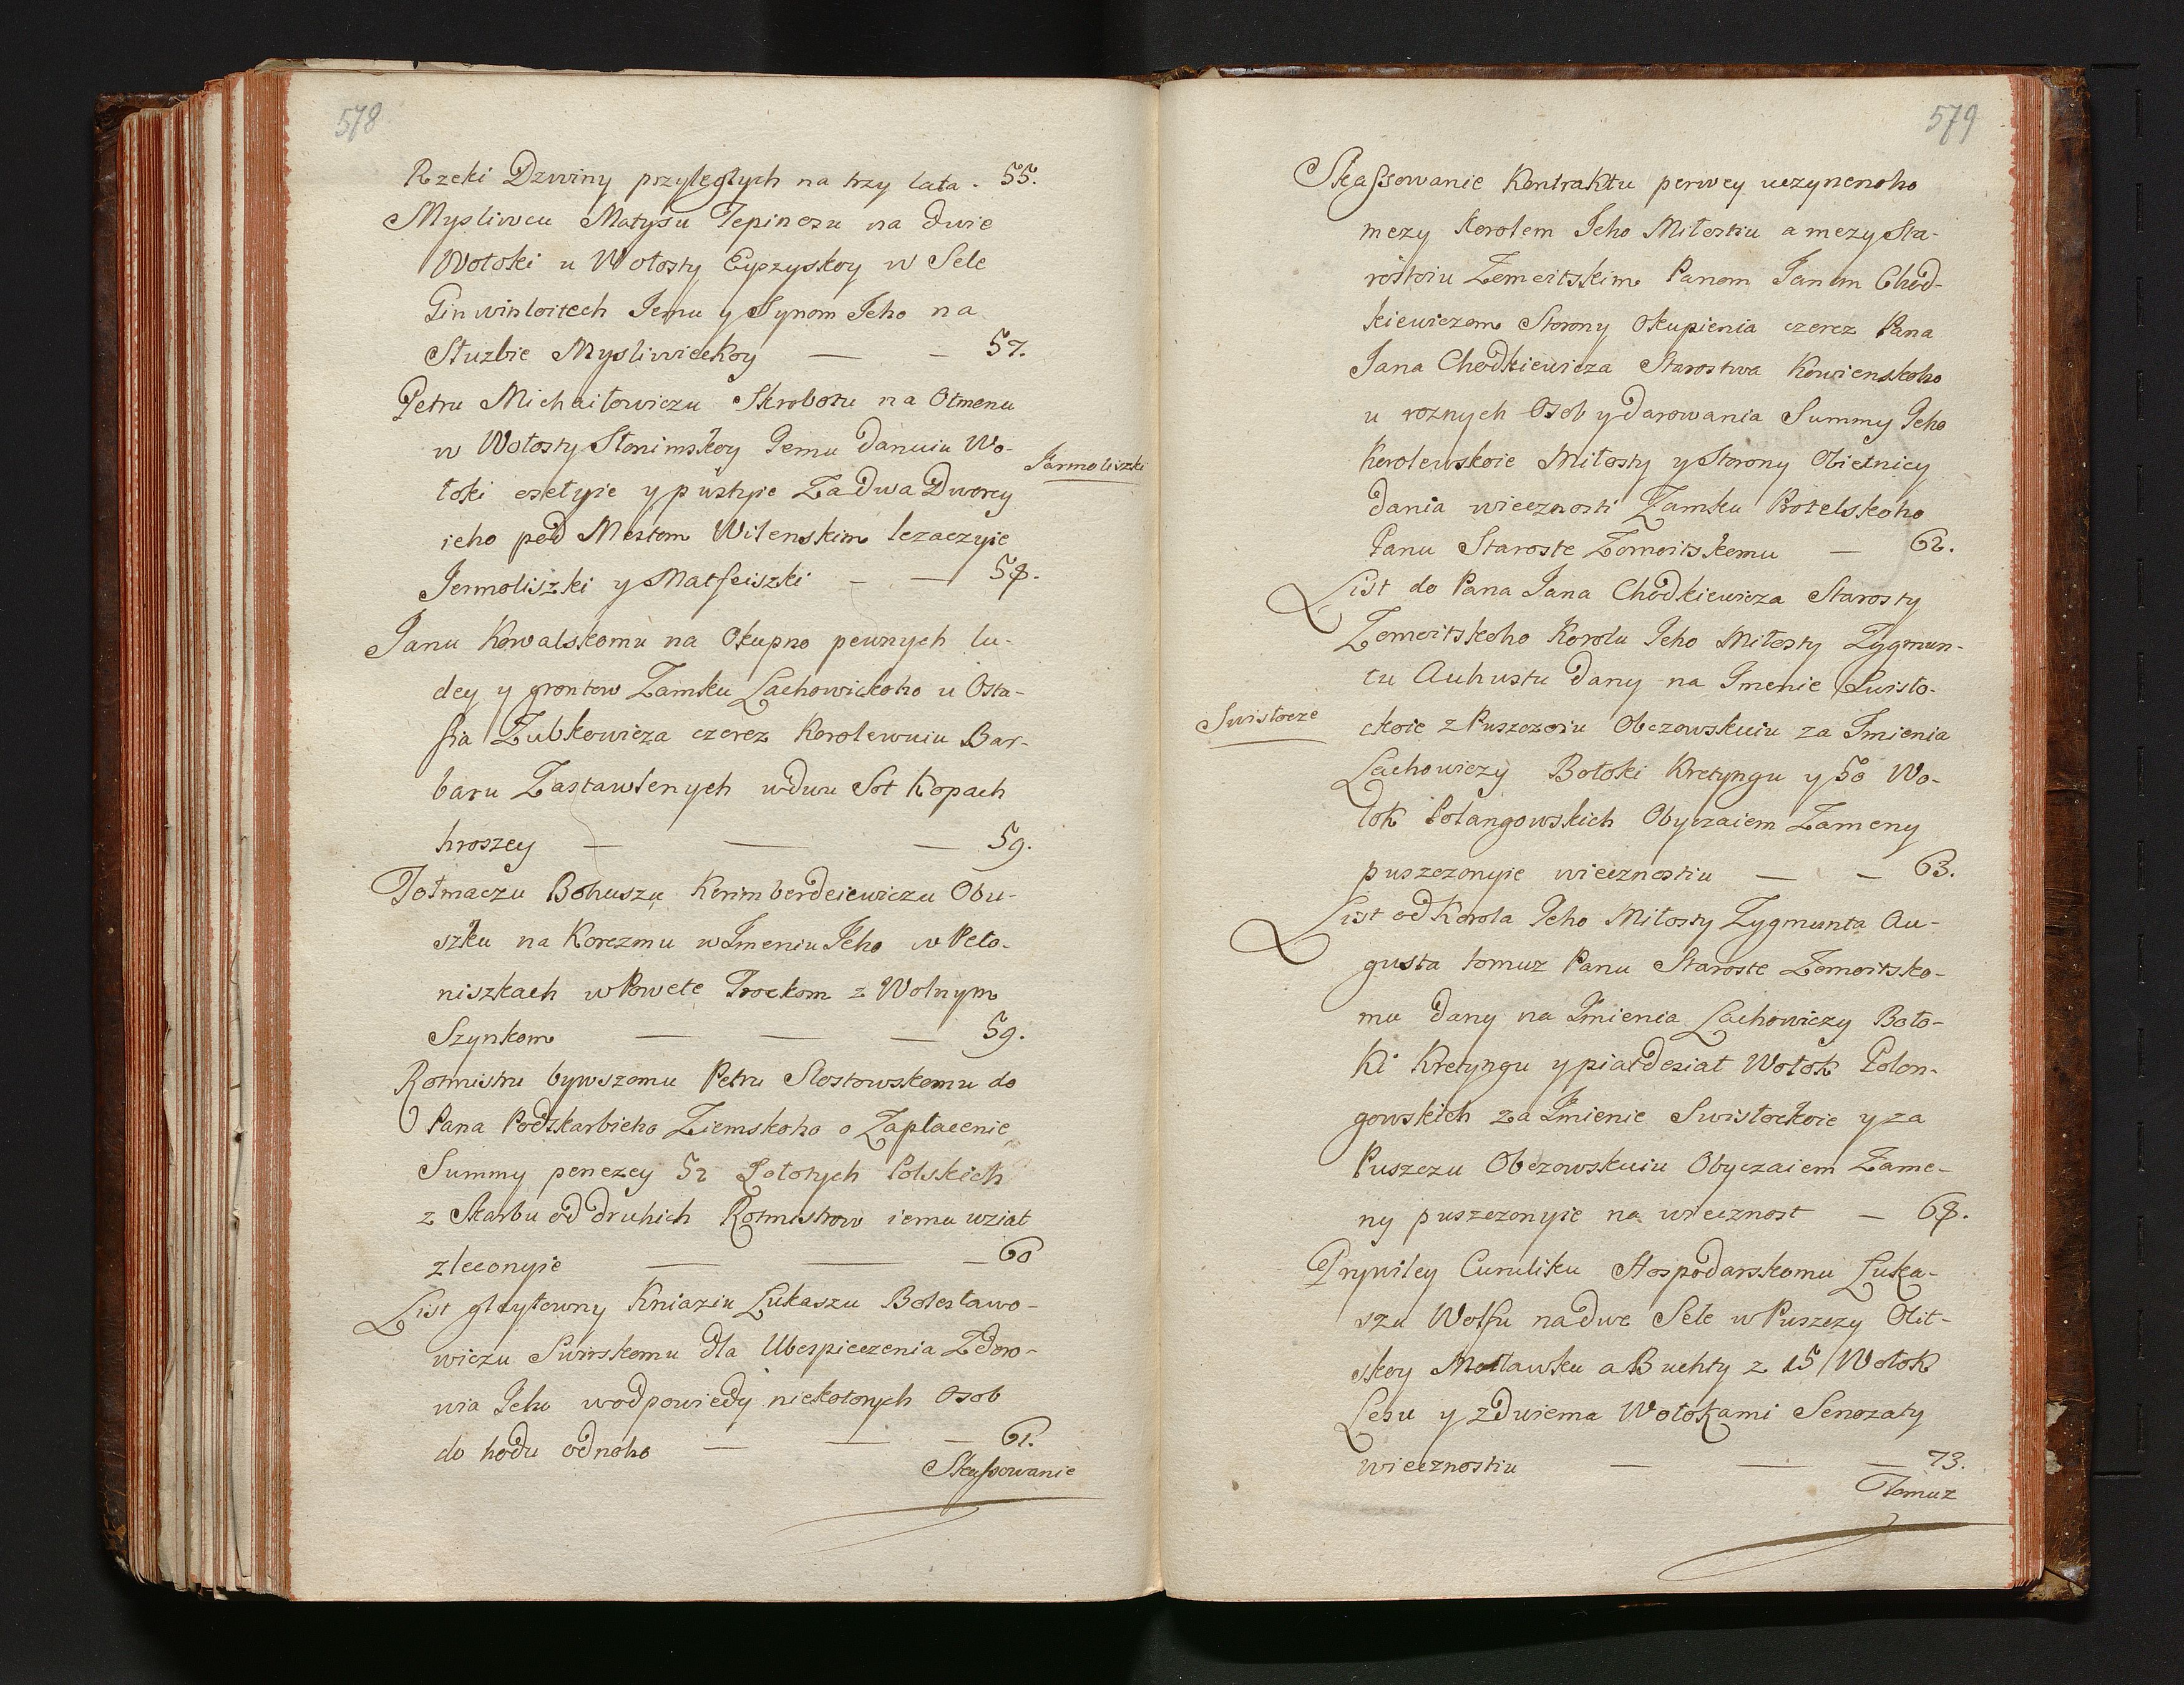 578
Rzeki Dzwiny przyległych na trzy lata . 55.
Mysliwcu Matysu Tepinesu na dwie
Wołoki u Wołosty Eyszyskoy w Sele
Ginwinłoitech Jemu y Synom Jeho na
Służbie Mysliwieckoy — — 57.
Petru Michaiłowiczu Skrobotu na Otmenu
w Wołosty Słonimskoy Jemu danuiu Wo-
Jarmoliszki
łoki osełyie y pustyie Za dwa Dworcy
ieho pod Mestom Wilenskim lezaczyie
Jermoliszki y Matfeiszki — — 58.
Janu Kowalskomu na Okupno pewnych lu-
dey y grontow Zamku Lachowickoho u Osta-
fia Zubkowicza czerez Korolewuiu Bar-
baru Zastawlenych w dwu Sot Kopach
hroszey — — — 59.
Tołmaczu Bohuszu Kerimberdeiewiczu Obu-
szku na Korczmu w Jmeniu Jeho w Peło-
niszkach w Powete Trockom z Wolnym
Szynkom — — — 59.
Rotmistru bywszomu Petru Słostowskomu do
Pana Podskarbieho Ziemskoho o Zapłacenie
Summy penezey 52 Zołotych Polskich
z Skarbu od druhich Rotmistrow iemu wziat
zleconyie — — — 60
List gleytowny Kniaziu Lukaszu Bolesławo-
wiczu Swirskomu dla Ubespieczenia Zdoro-
wia Jeho w odpowiedy niekotorych Osob
do hodu odnoho — — — 61.
Skassowanie
579
Skassowanie Kontraktu perwey uczynenoho
mezy Korolem Jeho Miłostiu a mezy Sta-
rostoiu Zemoitskim Panom Janom Chod-
kiewiczom Storony Okupienia czerez Pana
Jana Chodkiewicza Starostwa Kowienskoho
u roznych Osob y darowania Summy Jeho
Korolewskoie Miłosty y Storony Obietnicy
dania wiecznosti Zamku Botelskoho
Panu Staroste Zomoitskomu — 62.
List do Pana Jana Chodkiewicza Starosty
Zomoitskoho Korolu Jeho Miłosty Zygmun-
tu Auhustu dany na Jmenie Swisło-
Swisłocze
ckoie z Puszczoiu Obczowskuiu za Jmienia
Lachowiczy Bołoki Kretyngu y 50 Wo-
łok Połangowskich Obyczaiem Zameny
puszczonyie wiecznostiu — — 63.
List od Korola Jeho Miłosty Zygmunta Au-
gusta tomuz Panu Staroste Zomoitsko-
mu dany na Jmienia Lachowiczy Boło-
ki Kretyngu y piatdesiat Wołok Polon-
gowskich za Jmienie Swisłockoie y za
Puszczu Obczowskuiu Obyczaiem Zame-
ny puszczonyie na wiecznost — 68.
Prywiley Curuliku Hospodarskomu Luka-
szu Wolfu na dwe Sele w Puszczy Olit-
skoy Mostawku a Buchty z 15 Wołok
Lesu y z dwiema Wołokami Senozaty
wiecznostiu — — — 73.
Tomuz